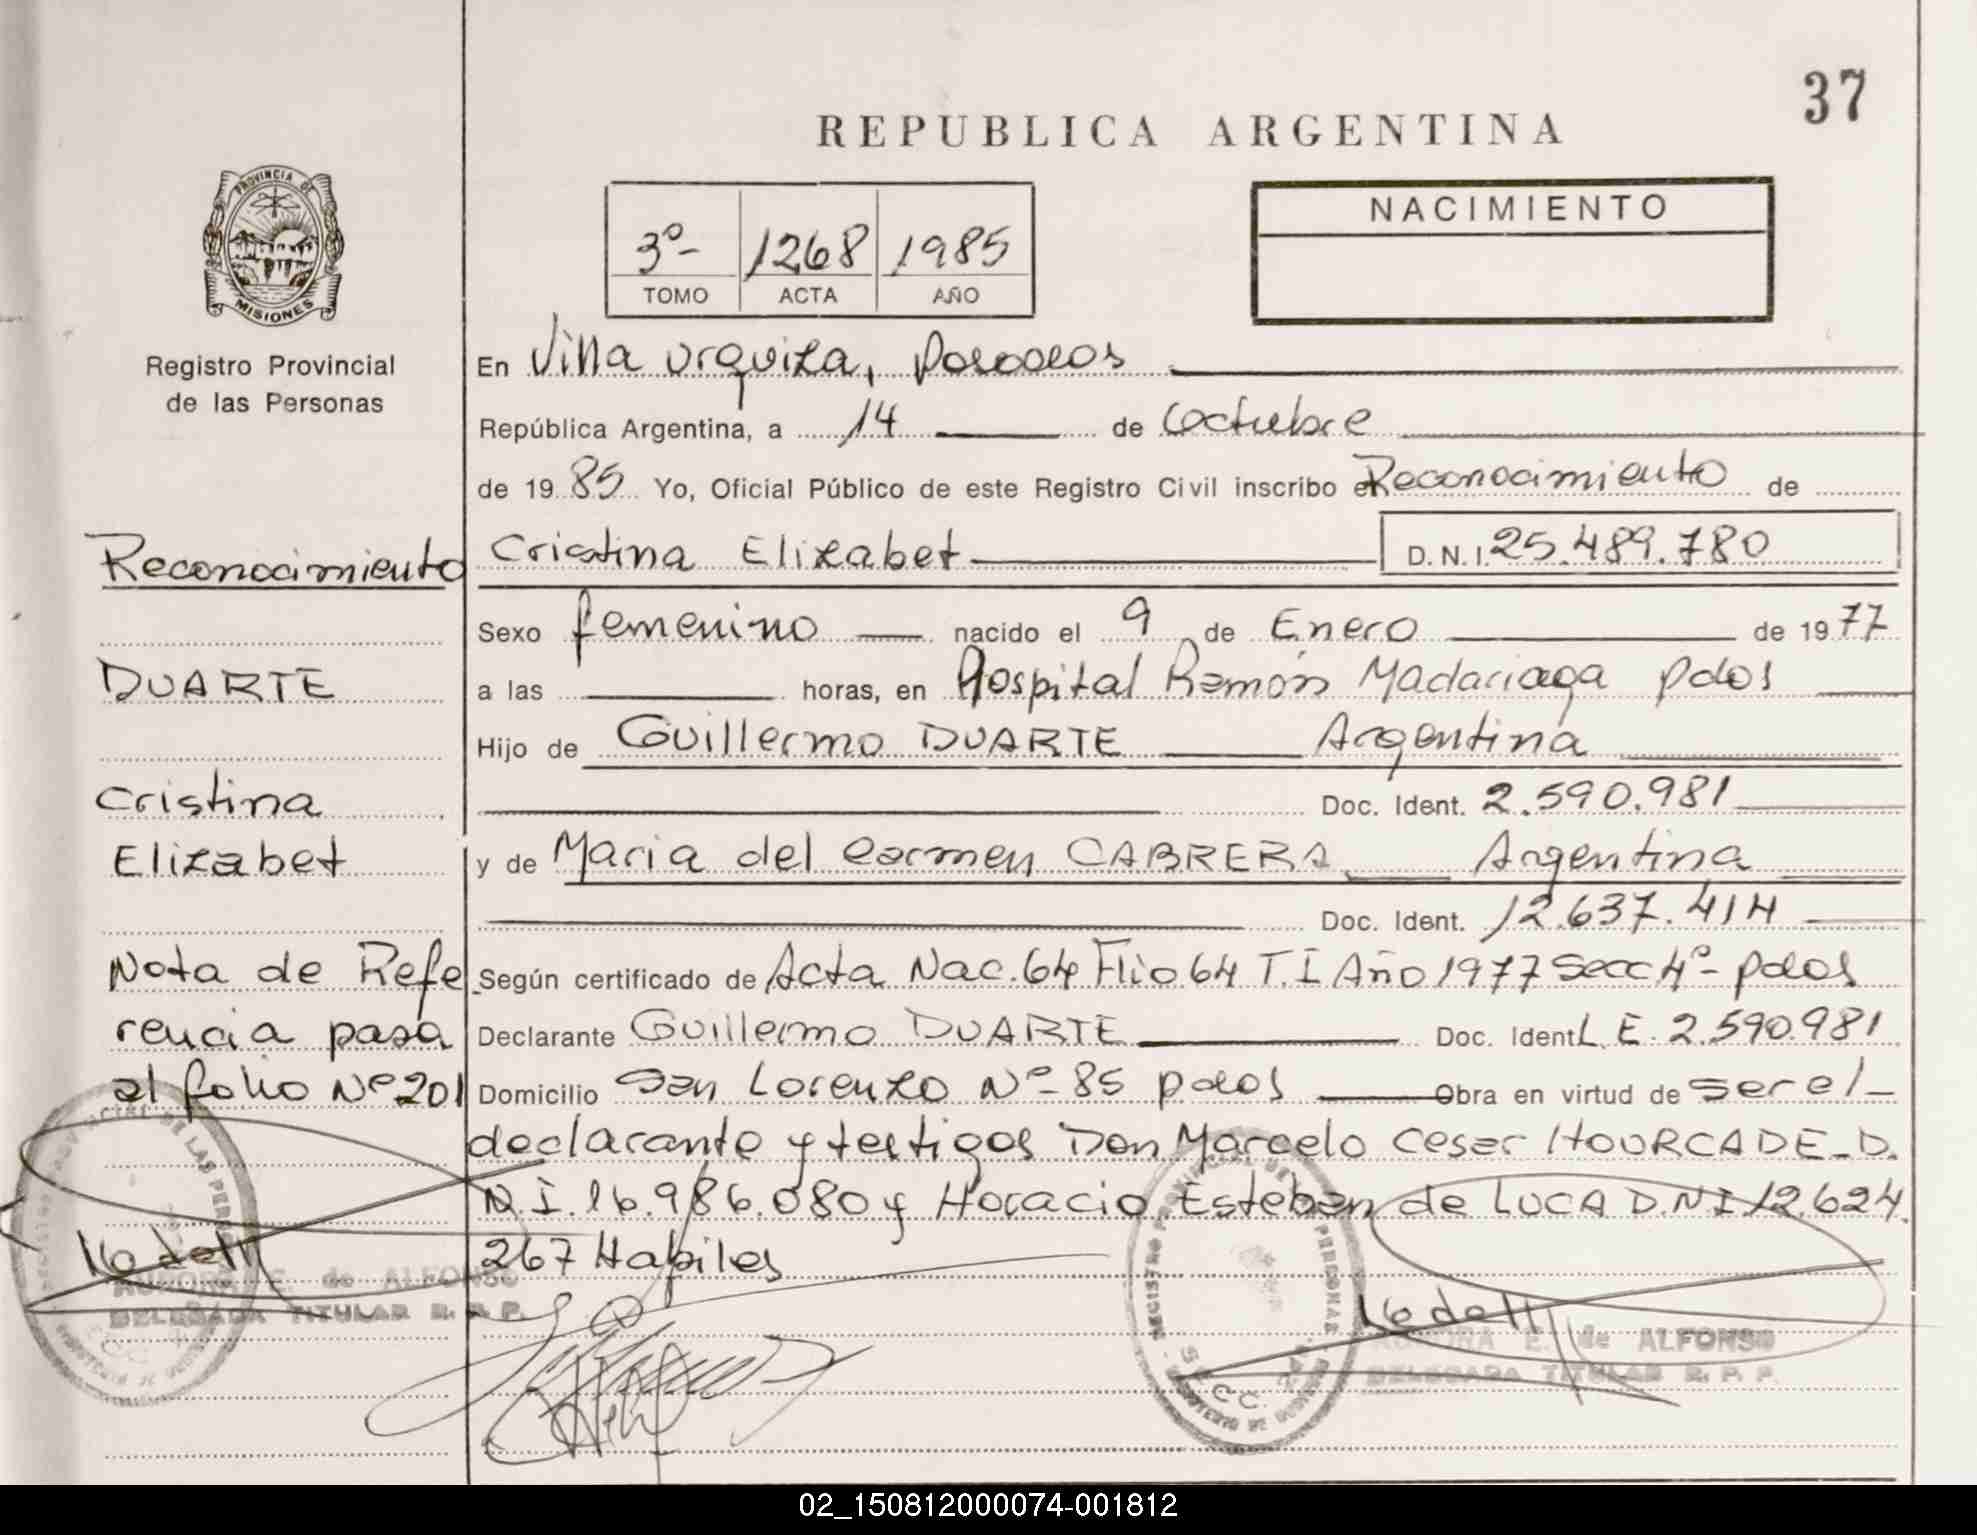 37
REPUBLICA ARGENTINA
PROVINCIA DE
MISIONES
Registro Provincial
de las Personas
3º- 1268 1985
TOMO ACTA AÑO
NACIMIENTO
En Villa Urquiza, Posadas
República Argentina, a 14 de Octubre
de 1985 Yo, Oficial Público de este Registro Civil inscribo el Reconocimiento de
Cristina Elizabet D.N.I. 25.489.780
Sexo femenino nacido el 9 de Enero de 1977
a las horas, en Hospital Ramón Madariaga pdas
Hijo de Guillermo DUARTE Argentina
Doc. Ident. 2.590.981
y de Maria del Carmen CABRERA Argentina
Doc. Ident. 12.637.414
Según certificado de Acta Nac. 64 Flio 64 T.I Año 1977 Secc 4º- pdas
Declarante Guillermo DUARTE Doc. Ident L.E. 2.590.981
Domicilio San Lorenzo Nº- 85 pdas Obra en virtud de ser el-
declarante y testigos Don Marcelo Cesar HOURCADE-D.
N.I. 16.986.080 y Horacio Esteban de LUCA D.N.I 12.624.
267 Habiles
Reconocimiento
DUARTE
Cristina
Elizabet
Nota de Refe
rencia pasa
al folio Nº 201
AURORA E. de ALFONSO
DELEGADA TITULAR R. P. P.
AURORA E. de ALFONSO
DELEGADA TITULAR R. P. P.
02_150812000074-001812